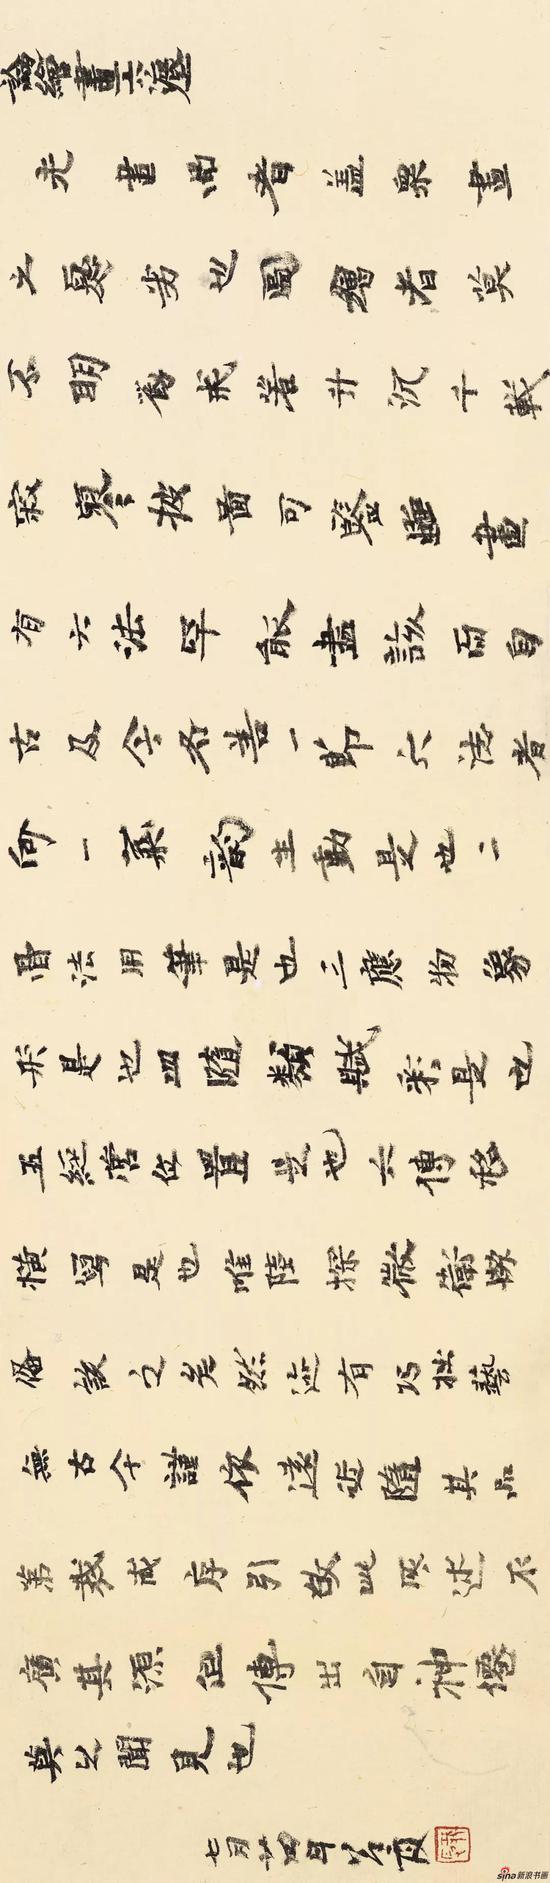 論繪畫六法
夫畫品者盖眾畫
之優劣也圖繪者莫
不明勸戒著升沉千載
寂寥披圖可鑒雖畫
有六法罕能盡該而自
古及今各善一節六法者
何一氣韵生動是也二
骨法用筆是也三應物象
形是也四隨類賦彩是也
五經營位置是也六傳移
橫寫是也唯陸探微衛協
俻該之矣然迹有巧拙藝
無古今謹依遠近隨其品
第裁成序引故此所述不
廣其源但傳出自神僊
莫之聞見也
七月
sina新浪书画